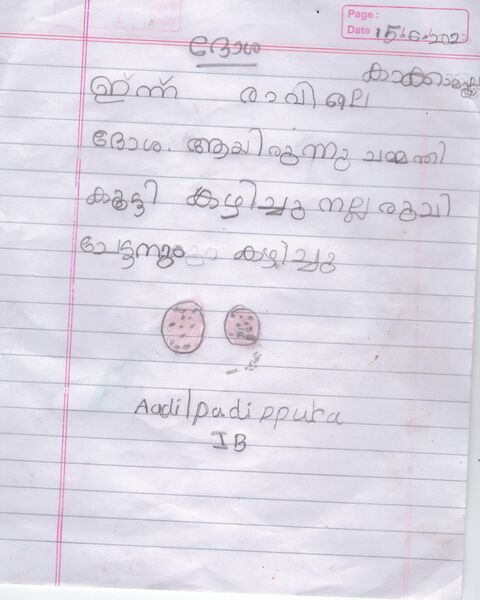 Page :
Date 15-6-202
ദോശ
ഇന്ന് രാവിലെ
ദോശ. ആയിരുന്നു ചമ്മന്തി
കൂട്ടി കഴിച്ചു നല്ല രുചി
ചേട്ടനും കഴിച്ചു
Aadil padippura
IB